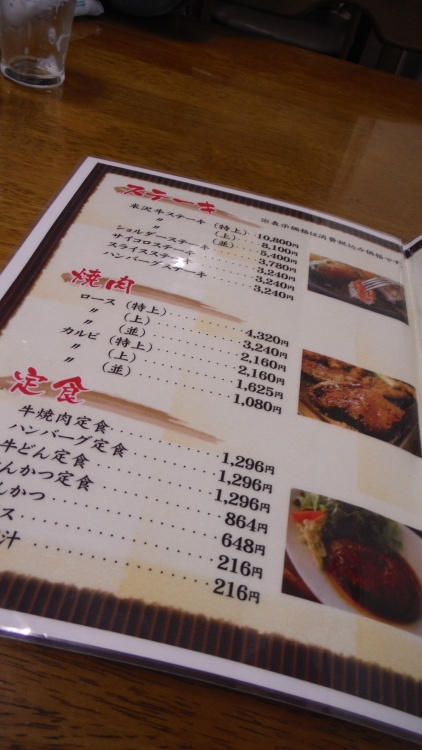 ステーキ
※表示価格は消費税込み価格です
米沢牛ステーキ (特上)‥10,800円
〃 (上)‥‥8,100円
〃 (並)‥‥5,400円
ショルダーステーキ‥‥‥3,780円
サイコロステーキ‥‥‥3,240円
スライスステーキ‥‥‥3,240円
ハンバーグステーキ‥‥‥3,240円
焼肉
ロース (特上)‥‥‥4,320円
〃 (上)‥‥‥3,240円
〃 (並)‥‥‥2,160円
カルビ (特上)‥‥‥2,160円
〃 (上)‥‥‥1,625円
〃 (並)‥‥‥1,080円
定食
牛焼肉定食‥‥‥1,296円
ハンバーグ定食‥‥‥1,296円
牛どん定食‥‥‥1,296円
んかつ定食‥‥‥864円
んかつ‥‥‥648円
ス‥‥‥216円
汁‥‥‥216円